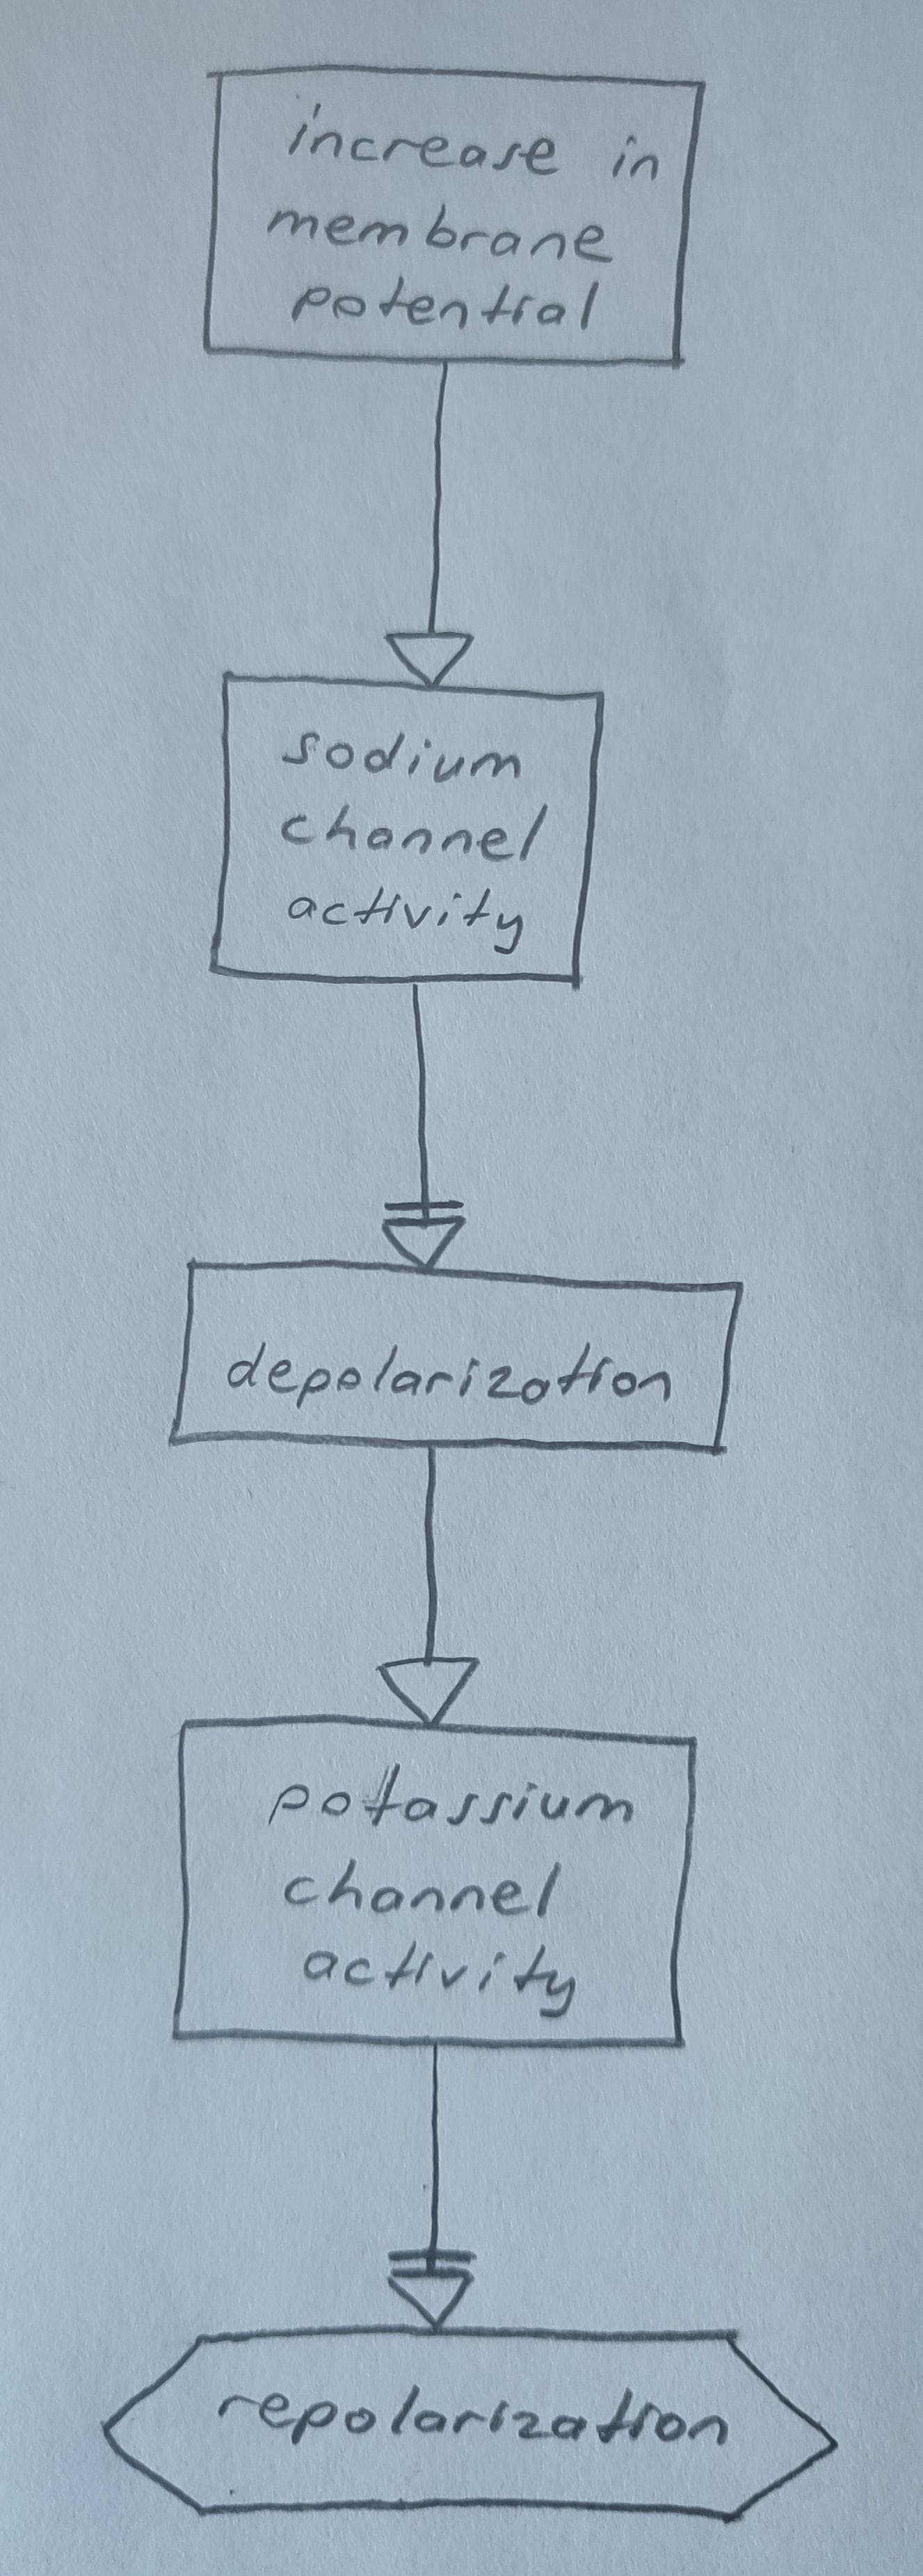 increase in
membrane
potential
sodium
channel
activity
depolarization
potassium
channel
activity
repolarization